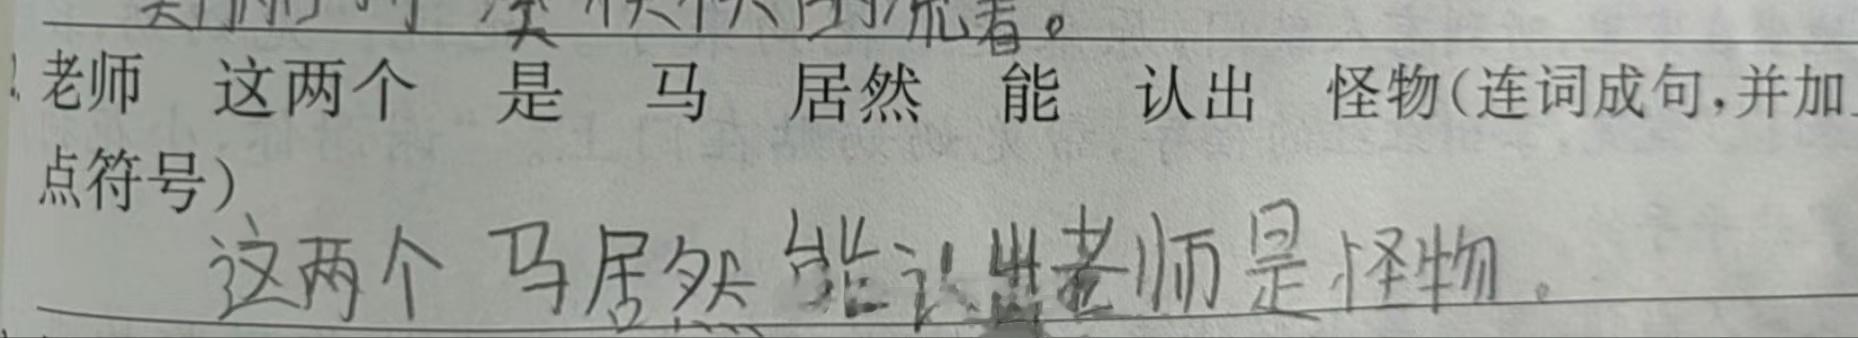 流着。
老师 这两个 是 马 居然 能 认出 怪物(连词成句,并加
点符号)
这两个马居然能认出老师是怪物。